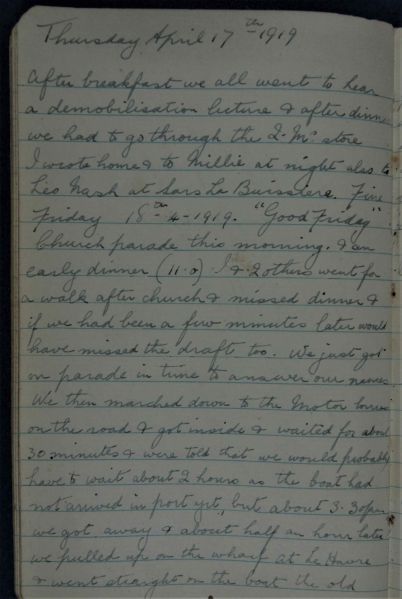 Thursday April 17th 1919
After breakfast we all went to hear
a demobilisation lecture & after dinner
we had to go through the Q. Mc store
I wrote home & to Millie at night also to
Leo Nash at Sars La Buissiere. Fine
Friday 18th-4-1919. "Good Friday"
Church parade this morning. & an
early dinner (11.0) I & 2 others went for
a walk after church & missed dinner &
if we had been a few minutes later would
have missed the draft too. We just got
on parade in time to answer our names.
We then marched down to the Motor lorries
on the road & got inside & waited for about
30 minutes & were told that we would probably
have to wait about 2 hours as the boat had
not arrived in port yet, but about 3.30pm
we got away & about half an hour later
we pulled up on the wharf at Le Havre
& went straight on the boat the old